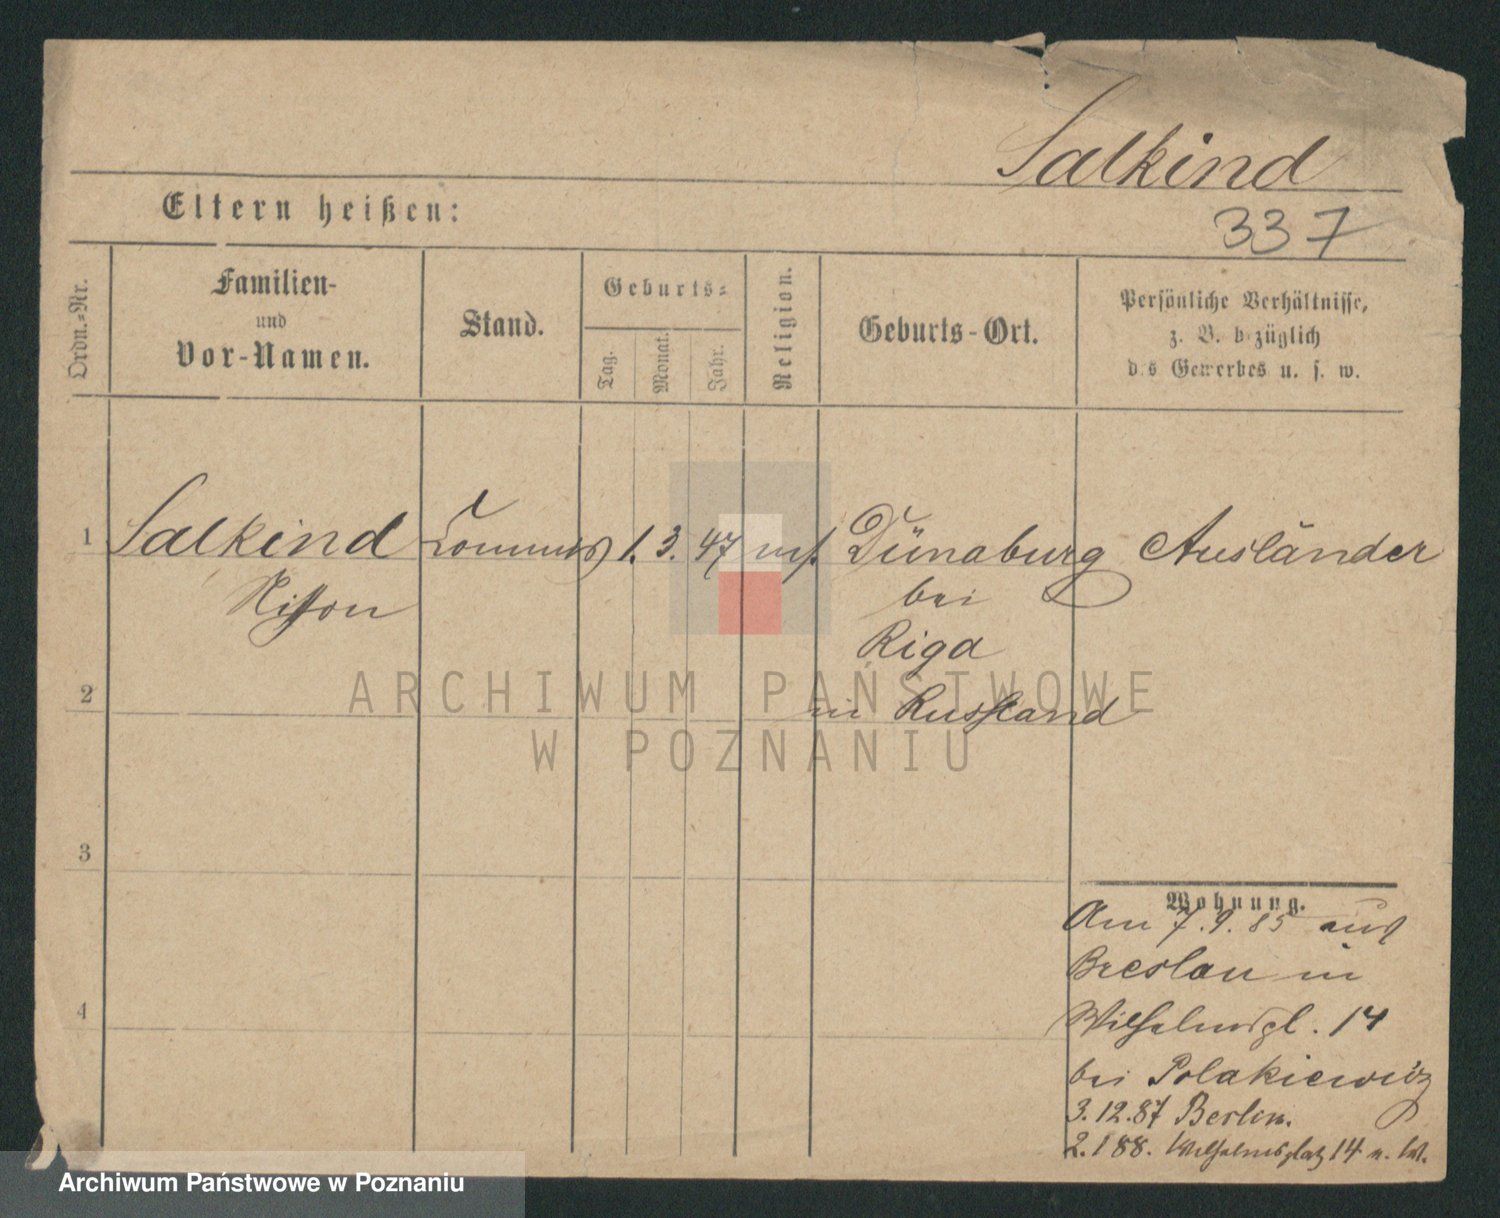 Salkind
337
Eltern heißen:
Ordn.-Nr.
Familien-
und
Vor-Namen.
Stand.
Geburts-
Tag.
Monat.
Jahr.
Religion.
Geburts-Ort.
Persönliche Verhältnisse,
z. B. bezüglich
des Gewerbes u. s. w.
1 Salkind Commis 1. 3. 47 mos. Dünaburg Ausländer
Nisson bei
Riga
2 in Russland
3
4
Wohnung.
Am 7.9.85 aus
Breslau in
Wilhelmspl. 14
bei Polakiewicz
3.12.87 Berlin.
2.1 88. Wilhelmsplatz 14 n. W.
ARCHIWUM PAŃSTWOWE
W POZNANIU
Archiwum Państwowe w Poznaniu